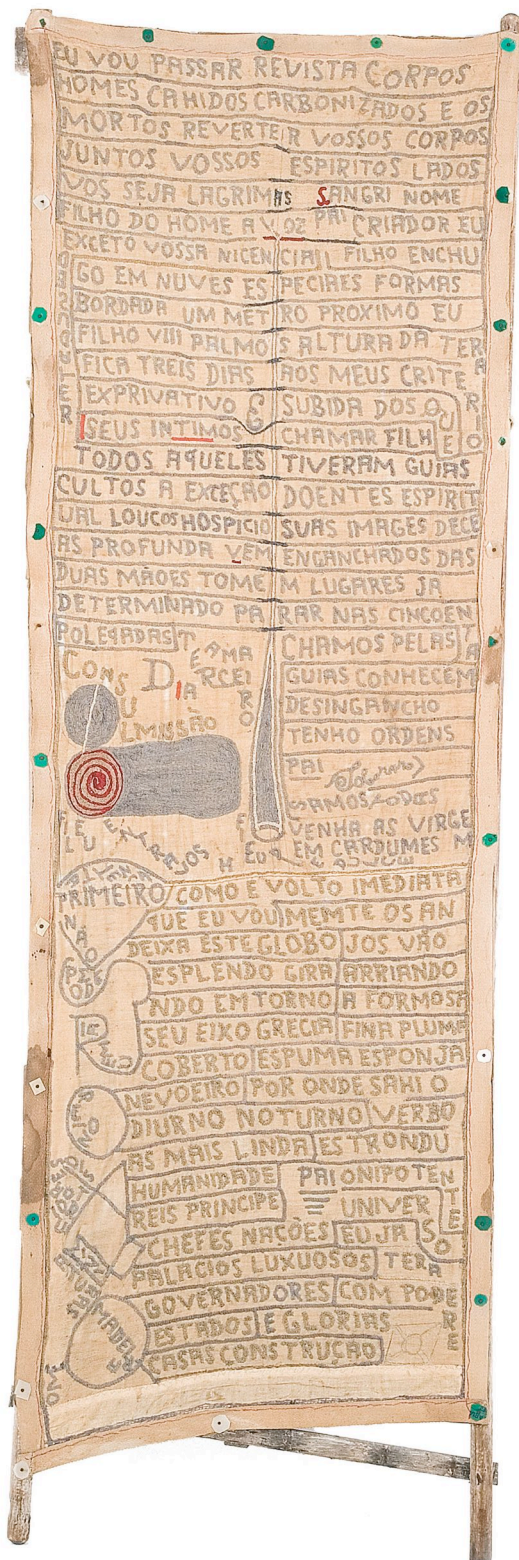 EU VOU PASSAR REVISTA CORPOS
HOMES CAHIDOS CARBONIZADOS E OS
MORTOS REVERTEIR VOSSOS CORPOS
JUNTOS VOSSOS ESPIRITOS LADOS
VOS SEJA LAGRIMAS SANGRI NOME
FILHO DO HOME A VOZ PAI CRIADOR EU
EXCETO VOSSA NICENCIA FILHO ENCHU
GO EM NUVES ESPECIAES FORMAS
BORDADA UM METRO PROXIMO EU
FILHO VIII PALMOS ALTURA DA TERA
FICA TREIS DIAS AOS MEUS CRITE
EXPRIVATIVO SUBIDA DOS QUE
SEUS INTIMOS CHAMAR FILH
TODOS AQUELES TIVERAM GUIAS
CULTOS A EXCEÇÃO DOENTES ESPIRIT
UAL LOUCOS HOSPICIO SUAS IMAGES DECE
AS PROFUNDA VEM ENGANCHADOS DAS
DUAS MÃOES TOMEM LUGARES JA
DETERMINADO PARAR NAS CINCOEN
TA
POLEGADAS
CHAMOS PELAS
GUIAS CONHECEM
DESINGANCHO
TENHO ORDENS
PAI
SAMOS TODOS
VENHA AS VIRGE
EM CARDUMES M
CONSU
LMISSÃO
DIA
TERCEIRO
PRIMEIRO
NÃO
COMO E VOLTO IMEDIATA
QUE EU VOU MEMTE OS AN
DEIXA ESTE GLOBO JOS VÃO
ESPLENDO GIRA ARRIANDO
NDO EM TORNO A FORMOSA
SEU EIXO GRECIA FINA PLUMA
COBERTO ESPUMA ESPONJA
NEVOEIRO POR ONDE SAHI O
DIURNO NOTURNO VERBO
AS MAIS LINDA ESTRONDU
HUMANIDADE PAI ONIPOTEN
TE
REIS PRINCIPE UNIVER
SO
CHEFES NAÇÕES EU JA
PALACIOS LUXUOSOS TERA
GOVERNADORES COM PODE
RE
ESTADOS E GLORIAS
CASAS CONSTRUÇÃO
RUIZ
MADEIRA